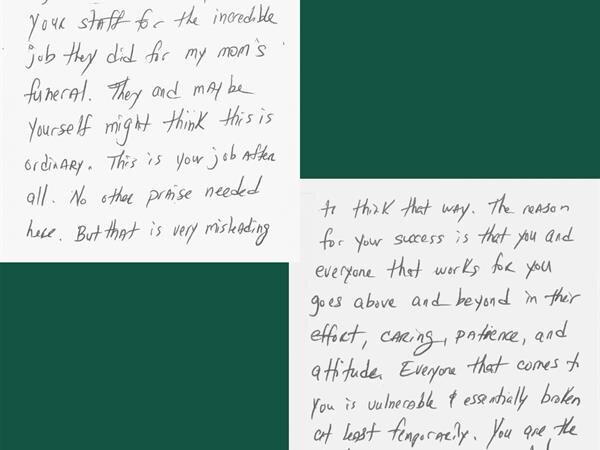 your staff for the incredible
job they did for my mom's
funeral. They and maybe
yourself might think this is
ordinary. This is your job after
all. No other praise needed
here. But that is very misleading
to think that way. The reason
for your success is that you and
everyone that works for you
goes above and beyond in their
effort, caring, patience, and
attitude. Everyone that comes to
you is vulnerable & essentially broken
at least temporarily. You are the